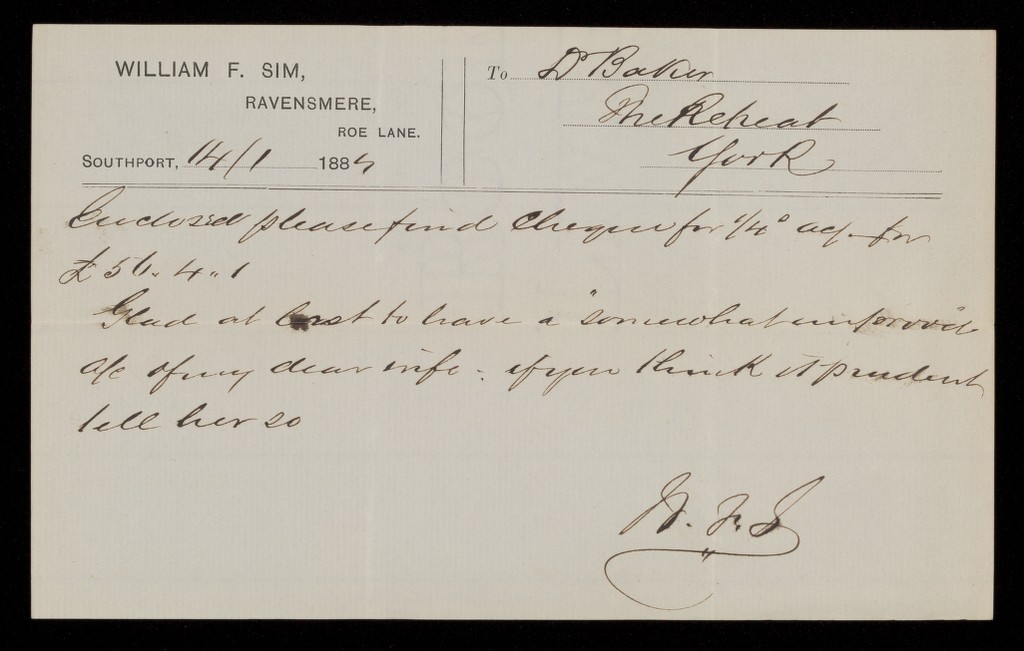 WILLIAM F. SIM,
RAVENSMERE,
ROE LANE.
SOUTHPORT, 14/1 1884
To Dr Baker
The Retreat
York
Enclosed please find Cheque for 1/4 a/c for
£56.4.1
Glad at last to have a "somewhat improved"
a/c of my dear wife. if you think it prudent
tell her so
W. F. S